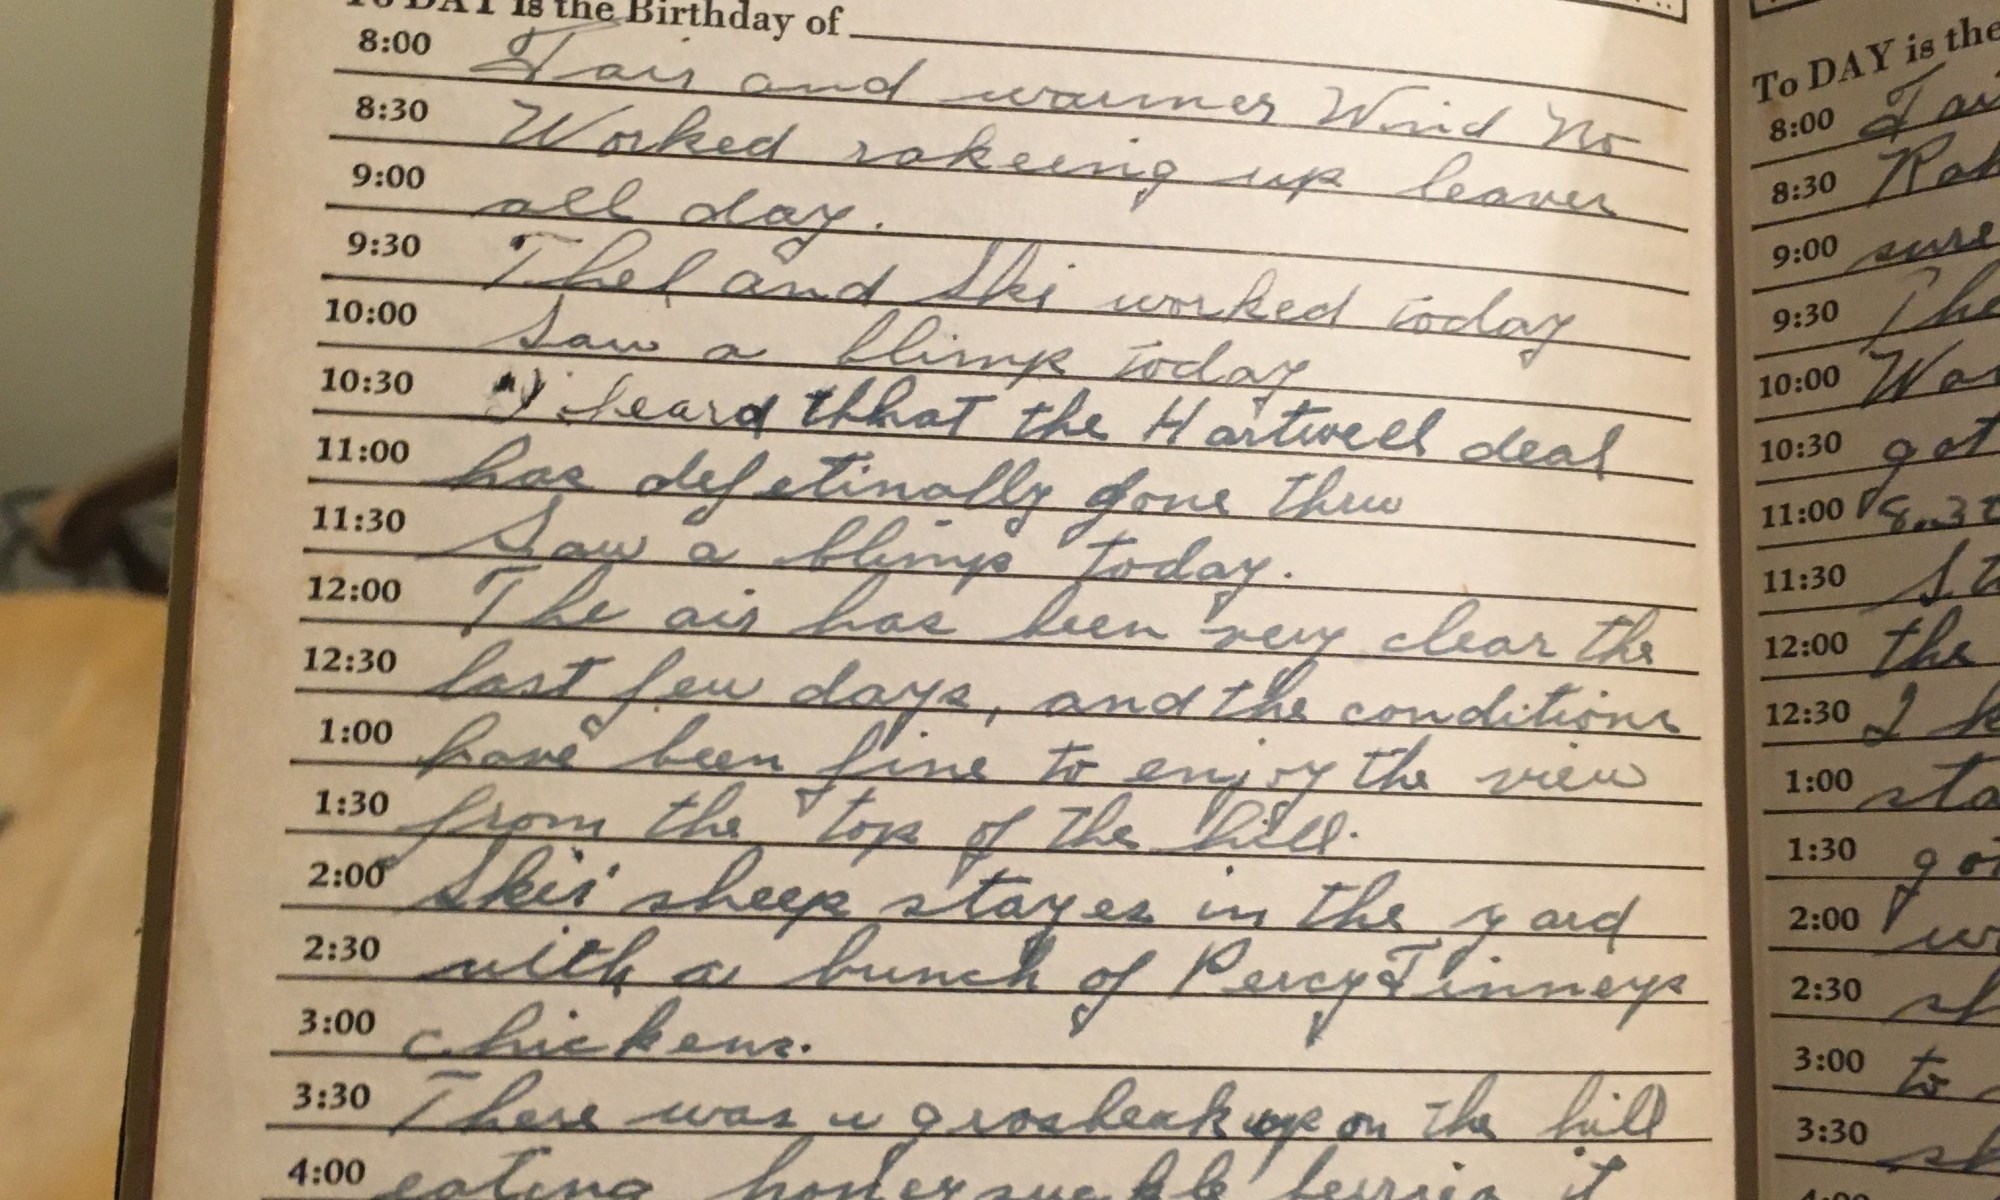 To DAY is the Birthday of
8:00 Fair and warmer Wind No
8:30 Worked rakeeing up leaves
9:00 all day.
9:30 Thel and Ski worked today
10:00 Saw a blimp today
10:30 I heard thhat the Hartwell deal
11:00 has defetinally gone threw
11:30 Saw a blimp today.
12:00 The air has been very clear the
12:30 last few days, and the conditions
1:00 have been fine to enjoy the view
1:30 from the top of the hill.
2:00 Skis' sheep stayes in the yard
2:30 with a bunch of Percy Finneys
3:00 chickens.
3:30 There was a grosbeak up on the hill
4:00 eating honeysuckle berries it
To DAY is the
8:00 Fai
8:30 Rak
9:00 sure
9:30 The
10:00 Wa
10:30 got
11:00
11:30 St
12:00 the
12:30 I k
1:00 sta
1:30 goi
2:00 w
2:30 sh
3:00 to
3:30 sk